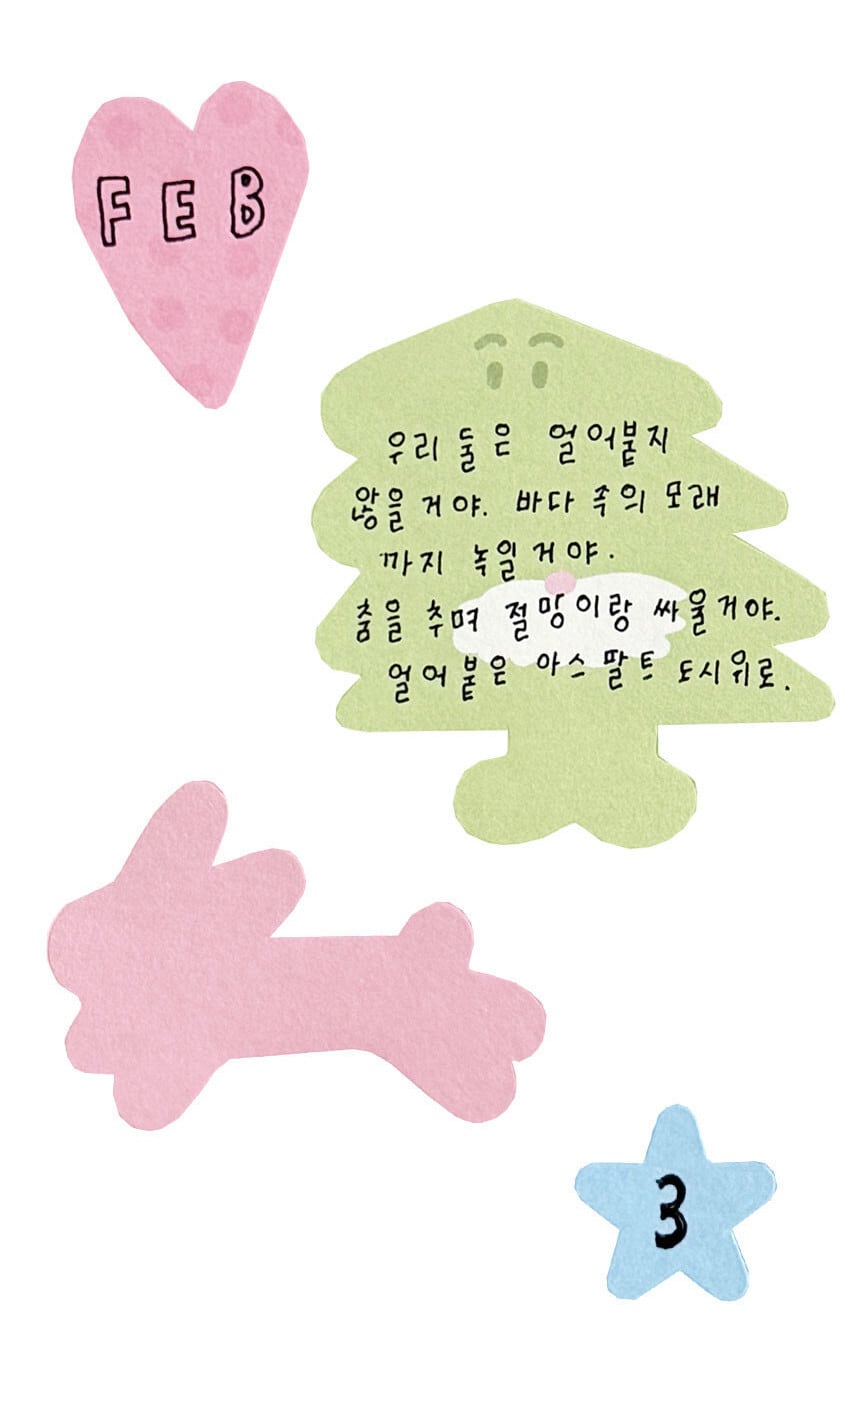 FEB
우리 둘은 얼어붙지
않을거야. 바다 속의 모래
까지 녹일거야.
춤을 추며 절망이랑 싸울거야.
얼어붙은 아스팔트 도시위로.
3